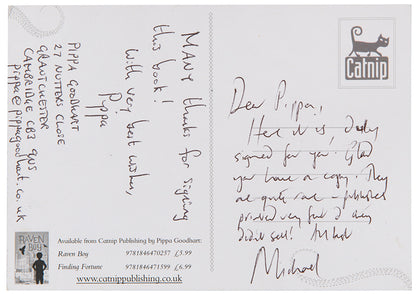 MANY thanks for signing
this book!
With very best wishes,
Pippa
PIPPA GOODHART
27 NUTTERS CLOSE
GRANTCHESTER
CAMBRIDGE CB3 9NS
pippa@pippagoodhart.co.uk
Catnip
Dear Pippa,
Here it is, duly
signed for you. Glad
you have a copy. They
are quite rare - publishers
printed very few & they
didn't sell! All best
Michael
RAVEN
BOY
Available from Catnip Publishing by Pippa Goodhart:
Raven Boy 9781846470257 £5.99
Finding Fortune 9781846471599 £6.99
www.catnippublishing.co.uk